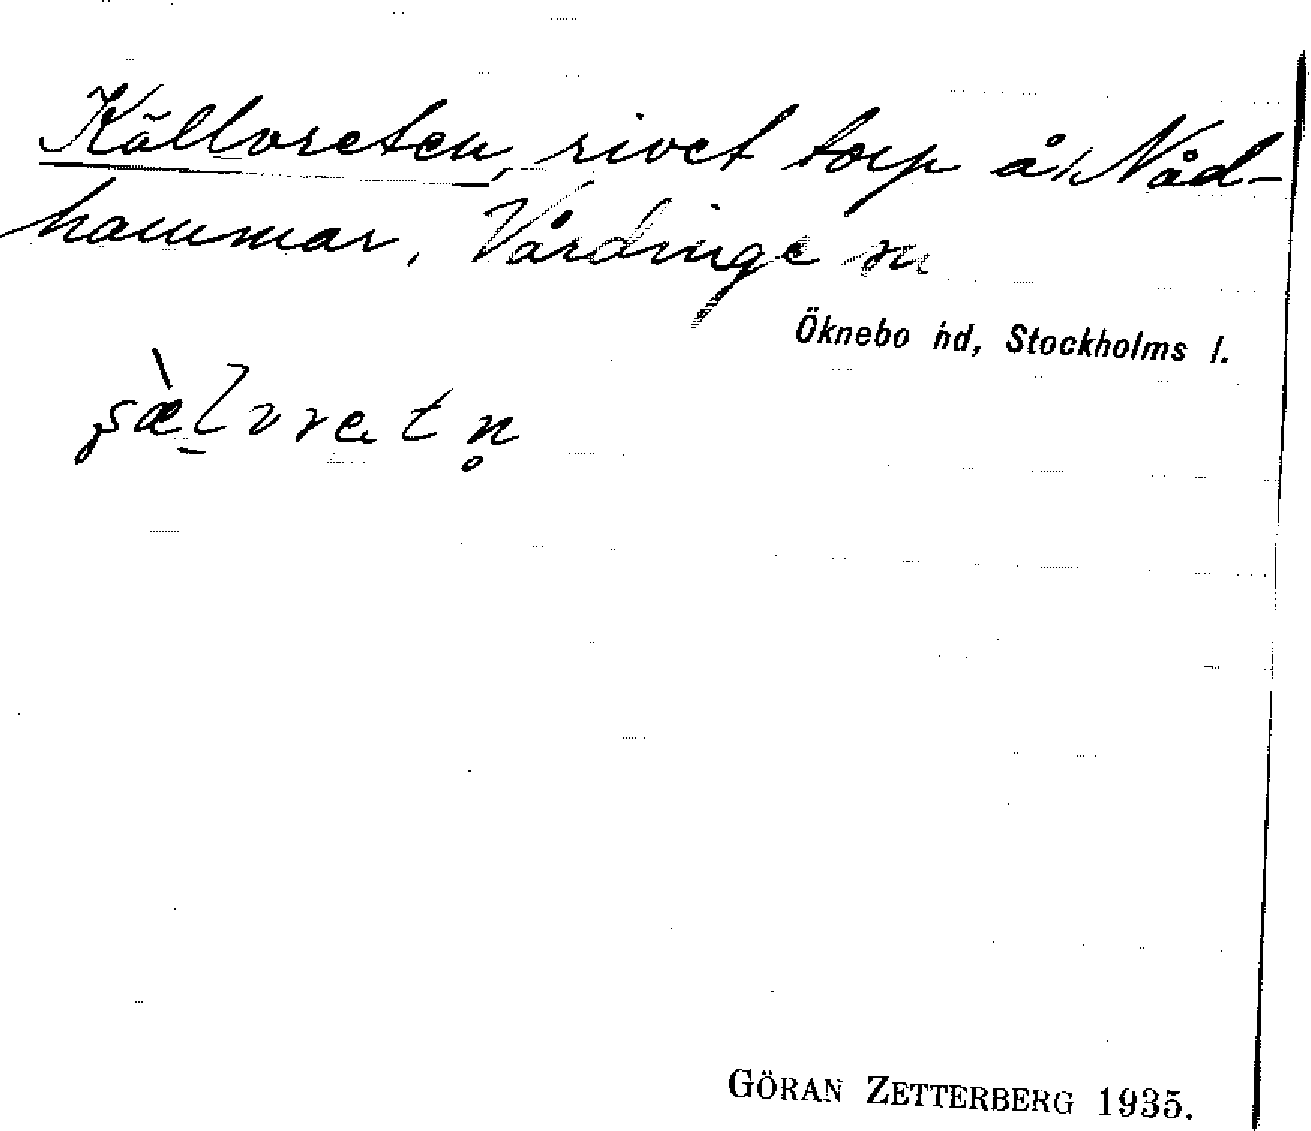 Källvreten, rivet torp å Nåd-
hammar, Vårdinge sn
Öknebo hd, Stockholms l.
GÖRAN ZETTERBERG 1935.